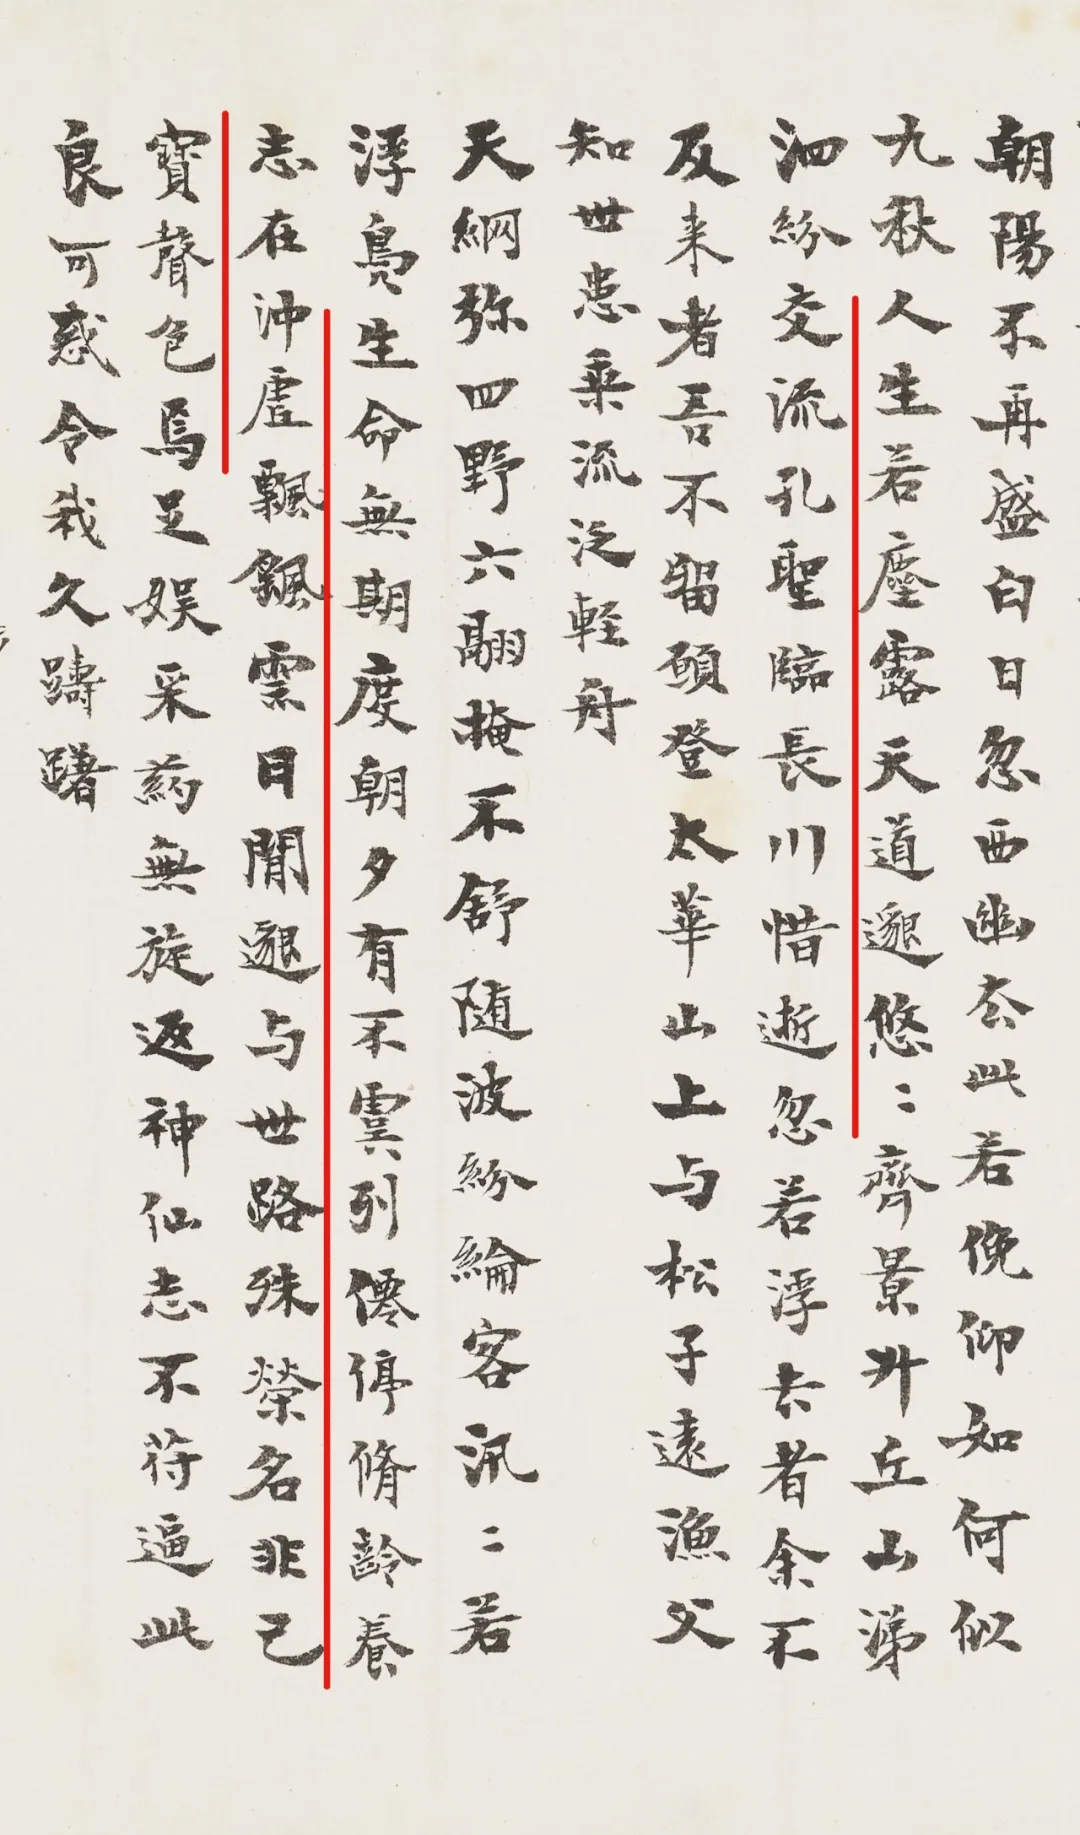 朝陽不再盛白日忽西幽去此若俛仰如何似
九秋人生若塵露天道邈悠〻齊景升丘山涕
泗紛交流孔聖臨長川惜逝忽若浮去者余不
及来者吾不留願登太華山上与松子遠漁父
知世患乗流泛軽舟
天網弥四野六翮掩不舒随波紛綸客汎〻若
浮鳧生命無期度朝夕有不虞列僊停脩齡養
志在沖虛飄飖雲日間邈与世路殊榮名非己
寶聲色焉足娱采药無旋返神仙志不符逼此
良可惑令我久躊躇